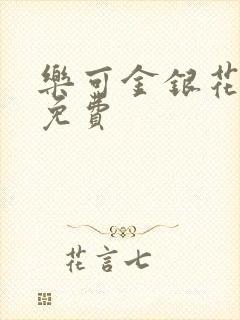 樂可金銀花
免費
花言七